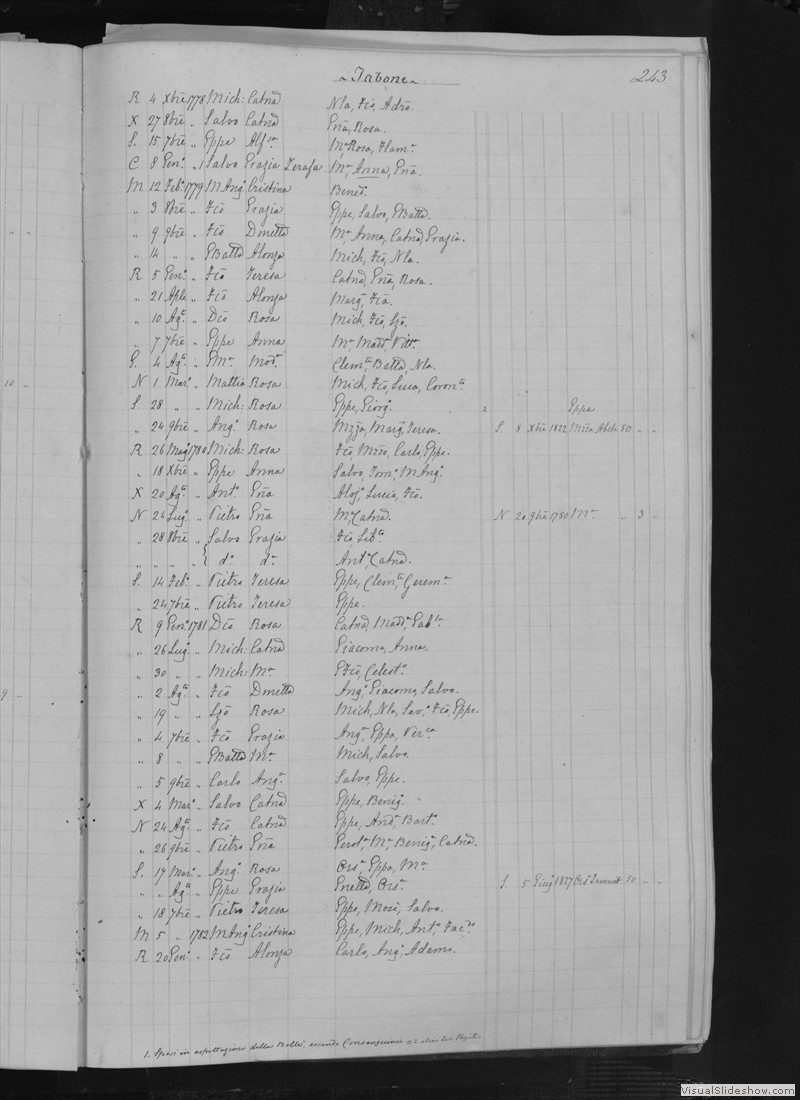 ~ Tabone ~ 243
R 4 Xbrē 1778 Mich: Catnā Nla, Fcō, Adrō.
X 27 8brē " Salvo Catnā Gnā, Rosa.
S. 15 7brē " Gppe Mª Rosa,
C 8 Gen.º " 1 Salvo Grazia Teresa Mª Anna, Gnā.
M 12 Feb.º 1779 M Ang.º Cristina Bened.
" 3 8brē " Fcō Grazia Gppe, Salvo, GBatta.
" 9 9brē " Fcō Dmetta Mª Anna, Catnā, Grazia.
" 14 " " GBatta Alonza Mich, Fcō, Nla.
R 5 Gen.º " Fcō Teresa Catnā, Gnā, Rosa.
" 21 Aple " Fcō Alonza Marg, Fca.
" 10 Ag.º " Dcō Rosa Mich, Fcō, Lzō.
" 7 7brē " Gppe Anna Mª Madª, Vittª
G. 4 Ag.º " GMª Modª Clemª, Batta, Nla.
10 " N 1 Mar.º " Mattia Rosa Mich, Fcō, Luca, Coronª
S. 28 " " Mich: Rosa Gppe, Giorg.º 2 Gppe
" 24 9brē " Ang.º Rosa Mzza, Marg, Teresa. S. 8 Xbrē 1822 Abela 50 " "
R 26 Mag.º 1780 Mich: Rosa Fcō, Mzzo, Carlo, Gppe.
" 18 Xbrē " Gppe Anna Salvo, Tom.º, M Ang.º
X 20 Ag.º " Ant.º Gnā Aloj.º, Lucio, Fcō.
N 24 Lug.º " Pietro Gnā Mª Catnā. N 20 9brē 1780 Mª " 3 "
" 28 8brē " Salvo Grazia Fcō, Libª
" " " " d.º d.º Ant.º, Catnā.
S. 14 Feb.º " Pietro Teresa Gppe, Clemª, Geremª
" 24 7brē " Pietro Teresa Gppe.
R 9 Gen.º 1781 Dcō Rosa Catnā, Madª, Gabª
" 26 Lug.º " Mich: Catnā Giacomo, Anna.
" 30 " " Mich: Mª GFcō, Celest.º
9 " " 2 Ag.º " Fcō Dmetta Ang.º, Giacomo, Salvo.
" 19 " " Lzō Rosa Mich, Nla, Sav.º, Fcō, Gppe.
" 4 7brē " Fcō Grazia Ang.º, Gppa, Verca
" 8 " " GBatta Mª Mich, Salvo.
" 5 9brē " Carlo Angª Salvo, Gppe.
X 4 Mar.º " Salvo Catnā Gppe, Benig.
N 24 Ag.º " Fcō Catnā Gppe, And.º, Bart.º
" 26 9brē " Pietro Gnā Gerolª, Mª, Benig, Catnā.
S. 17 Mar.º " Ang.º Rosa Orsª, Gppa, Mª
" " Ag.º " Gppe Grazia Gnetta, Orsª S. 5 Giug 1827 50 " "
" 18 7brē " Pietro Teresa Gppe, Mosè, Salvo.
M 5 " 1782 M Ang.º Cristina Gppe, Mich, Ant.º,
R 20 Gen.º " Fcō Alonza Carlo, Ang.º, Adamo.
1. Sposi in aspettazione della Bolla, essendo Consanguinei
VisualSlideshow.com